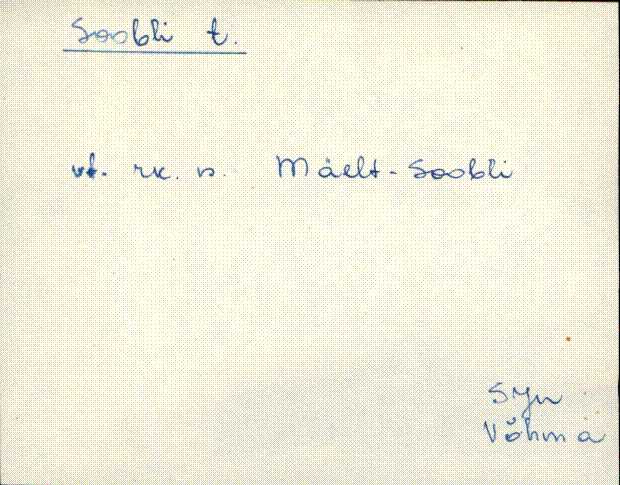 Soobli t.
vt. rk. s. Mäelt-Soobli
SJn
Võhma